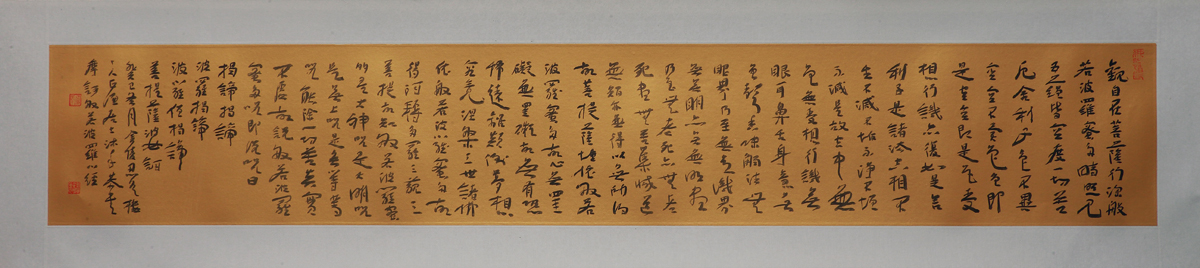 觀自在菩薩行深般
若波羅蜜多時照見
五蘊皆空度一切苦
厄舍利子色不異
空空不異色色即
是空空即是色受
想行識亦復如是舍
利子是諸法空相不
生不滅不垢不淨不增
不減是故空中無
色無受想行識無
眼耳鼻舌身意無
色聲香味觸法無
眼界乃至無意識界
無無明亦無無明盡
乃至無老死亦無老
死盡無苦集滅道
無智亦無得以無所得
故菩提薩埵依般若
波羅蜜多故心無罣
礙無罣礙故無有恐
怖遠離顛倒夢想
究竟涅槃三世諸佛
依般若波羅蜜多故
得阿耨多羅三藐三
菩提故知般若波羅蜜
多是大神咒是大明咒
是無上咒是無等等
咒能除一切苦真實
不虛故說般若波羅
蜜多咒即說咒曰
揭諦揭諦
波羅揭諦
波羅僧揭諦
菩提薩婆訶
癸巳年
摩訶般若波羅心經